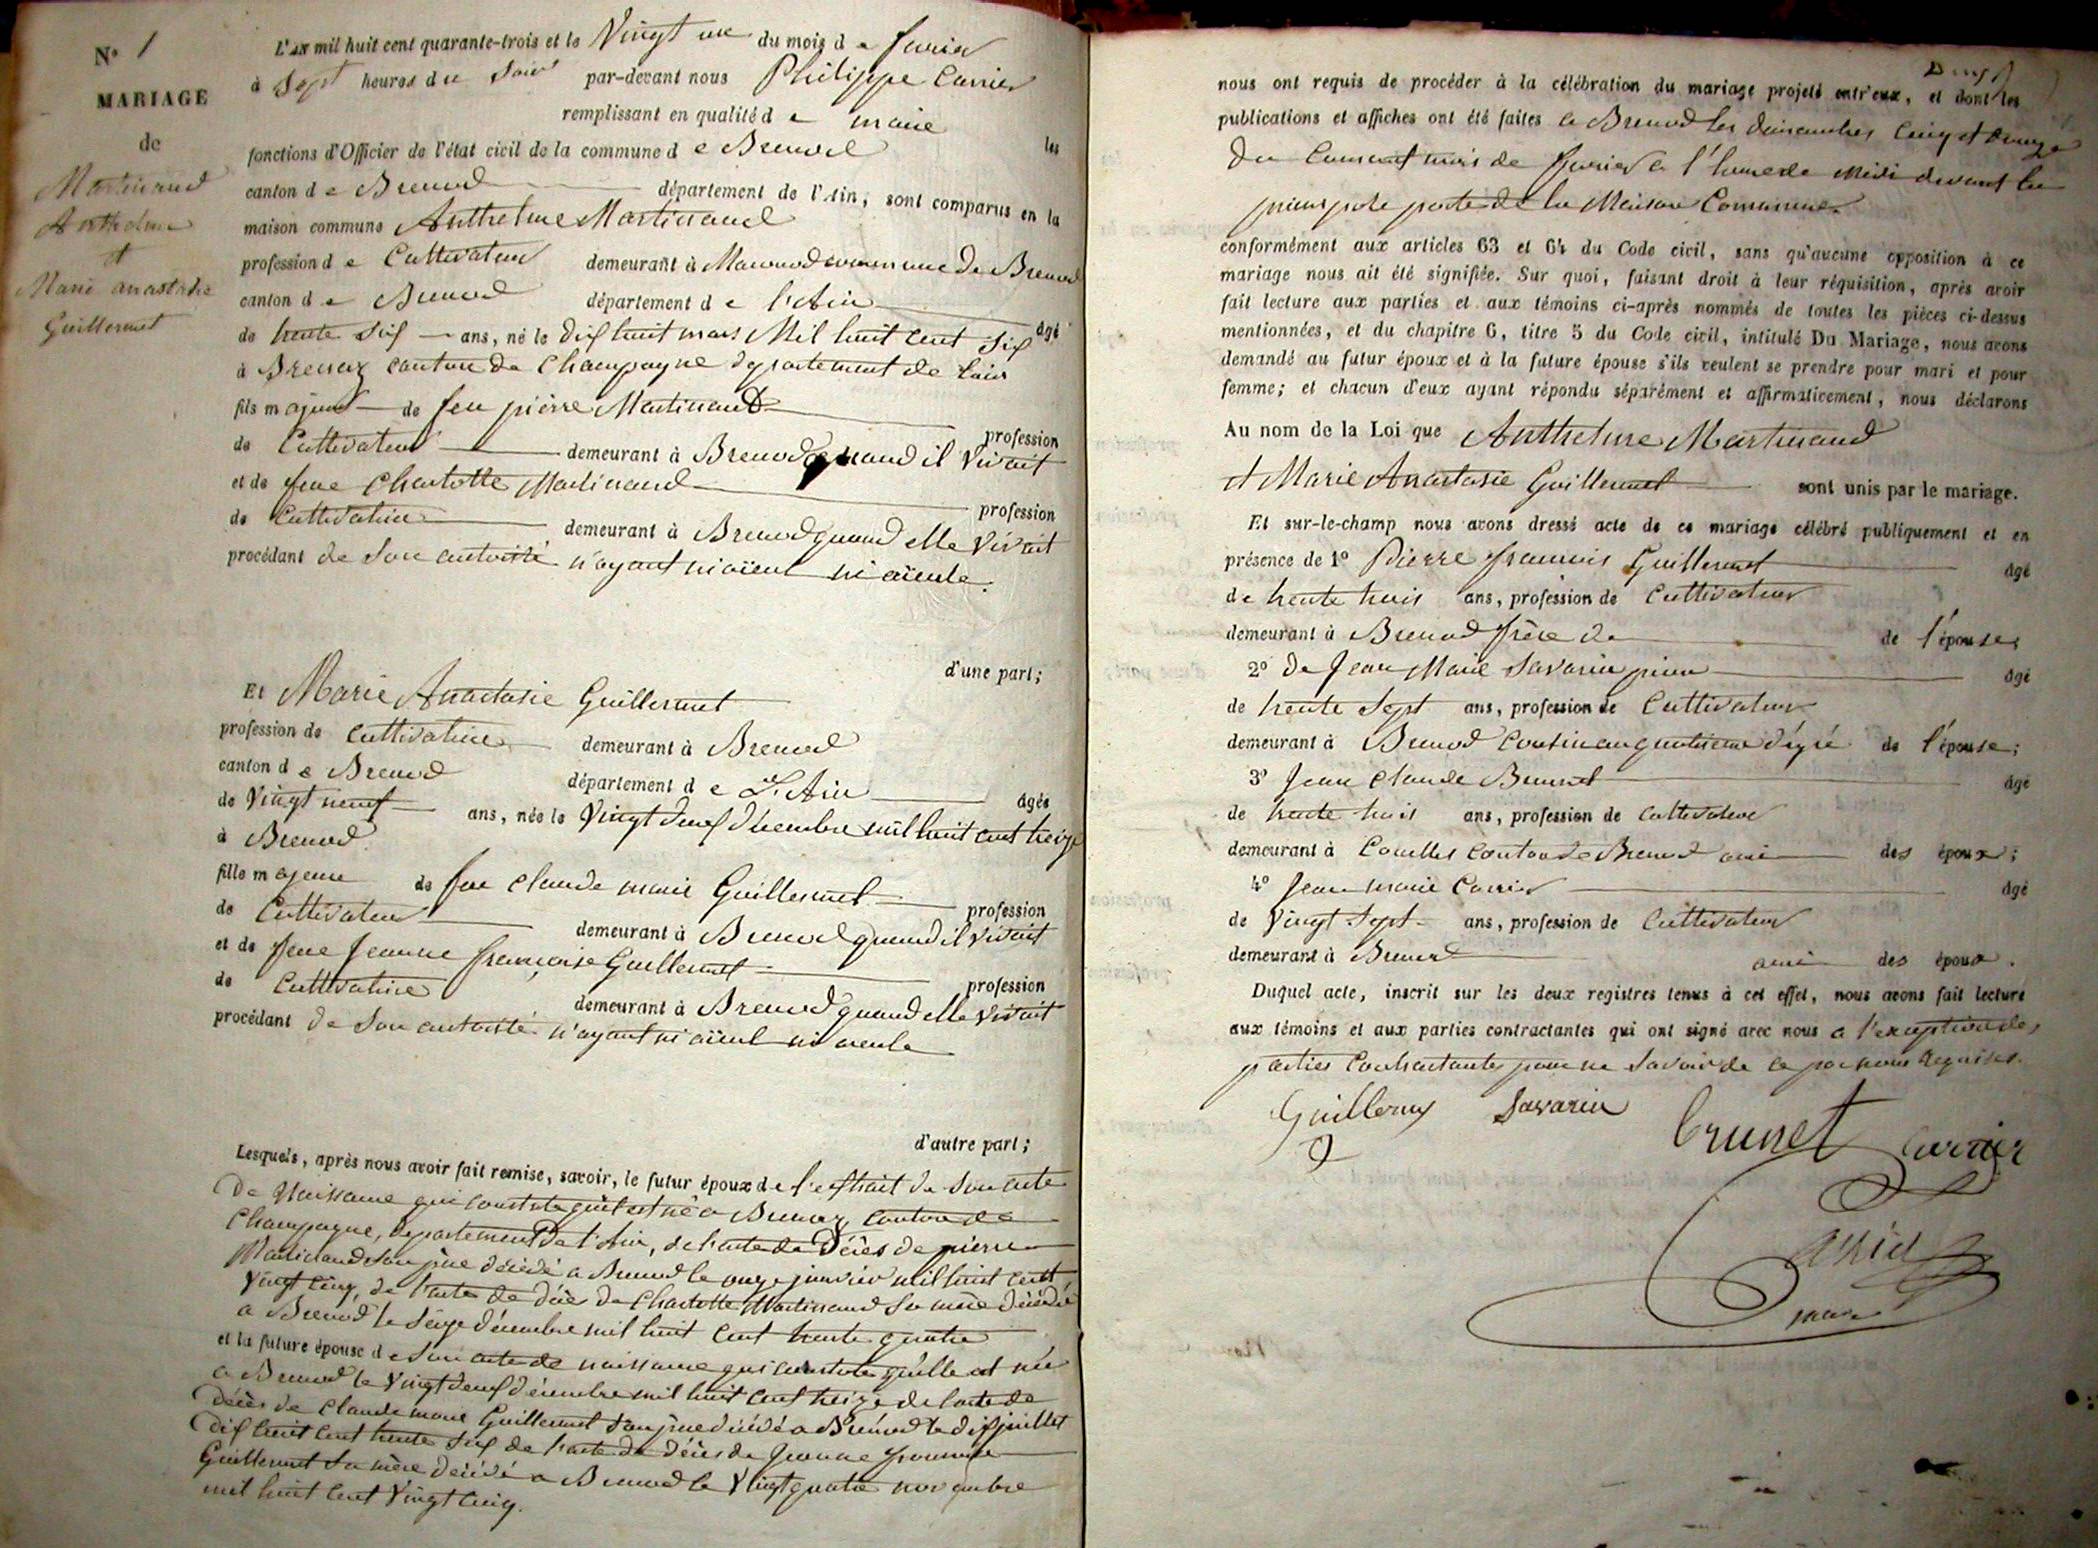 N° 1
MARIAGE
de
Martinand
Anthelme
et
Marie anastasie
Guillermet
L'an mil huit cent quarante-trois et le Vingt un du mois de fevrier
à Sept heures du Soir par-devant nous Philippe Carrier
remplissant en qualité de maire les
fonctions d'Officier de l'état civil de la commune de Brenod
canton de Brenod département de l'Ain, sont comparus en la
maison commune Anthelme Martinand
profession de Cultivateur demeurant à Macconod commune de Brenod
canton de Brenod département de l'Ain âgé
de trente six ans, né le dix huit mars Mil huit cent six
à Brenaz canton de Champagne département de l'ain
fils majeur de feu pierre Martinand profession
de Cultivateur demeurant à Brenod quand il vivait
et de feue Charlotte Martinand profession
de Cultivatrice demeurant à Brenod quand elle vivait
procédant de Son autorité n'ayant ni aïeul ni aïeule.
d'une part;
Et Marie Anastasie Guillermet
profession de Cultivatrice demeurant à Brenod
canton de Brenod département de L'Ain âgée
de Vingt neuf ans, née le Vingt deux décembre mil huit cent treize
à Brenod
fille majeure de feu Claude marie Guillermet profession
de Cultivateur demeurant à Brenod quand il vivait
et de feue Jeanne françoise Guillermet profession
de Cultivatrice demeurant à Brenod quand elle vivait
procédant de Son autorité n'ayant ni aïeul ni aieule
d'autre part;
Lesquels, après nous avoir fait remise, savoir, le futur époux de l'extrait de Son acte
de Naissance qui constate qu'il est né a Brenaz canton de
Champagne, departement de l'Ain, de l'acte de Décès de pierre
Martinand Son père décédé a Brenod le onze janvier mil huit cent
Vingt cinq, de l'acte de décès de Charlotte Martinand Sa mère décédée
a Brenod le Seize décembre mil huit cent trente quatre
et la future épouse de Son acte de naissance qui constate qu'elle est née
a Brenod le Vingt deux décembre mil huit cent treize de l'acte de
décès de Claude marie Guillermet Son père décédé a Brénod le dix juillet
dix huit cent trente six de l'acte de décès de Jeanne françoise
Guillermet Sa mère décédé a Brenod le Vingt quatre novembre
mil huit cent Vingt cinq.
nous ont requis de procéder à la célébration du mariage projeté entr'eux, et dont les
publications et affiches ont été faites a Brenod les dimanches cinq et douze
du Courant mois de fevrier a l'heure de Midi devant la
principale porte de la Maison Commune
conformément aux articles 63 et 64 du Code civil, sans qu'aucune opposition à ce
mariage nous ait été signifiée. Sur quoi, faisant droit à leur réquisition, après avoir
fait lecture aux parties et aux témoins ci-après nommés de toutes les pièces ci-dessus
mentionnées, et du chapitre 6, titre 5 du Code civil, intitulé Du Mariage, nous avons
demandé au futur époux et à la future épouse s'ils veulent se prendre pour mari et pour
femme; et chacun d'eux ayant répondu séparément et affirmativement, nous déclarons
Au nom de la Loi que Anthelme Martinand
et Marie Anastasie Guillermet sont unis par le mariage.
Et sur-le-champ nous avons dressé acte de ce mariage célébré publiquement et en
présence de 1° Pierre françois Guillermet âgé
de trente trois ans, profession de Cultivateur
demeurant à Brenod frère de de l'épouse;
2° de Jean Marie Savarin âgé
de trente Sept ans, profession de Cultivateur
demeurant à Brenod Cousin au quatrieme dégré de l'épouse;
3° Jean Claude Brunet âgé
de trente huit ans, profession de cultivateur
demeurant à Canton de Brenod ami des époux;
4° Jean marie Carrier âgé
de Vingt Sept ans, profession de Cultivateur
demeurant à Brenod ami des époux.
Duquel acte, inscrit sur les deux registres tenus à cet effet, nous avons fait lecture
aux témoins et aux parties contractantes qui ont signé avec nous a l'exception des
parties Contractantes pour ne Savoir de ce par nous requises.
Guillermet Savarin brunet Carrier
Carrier
maire